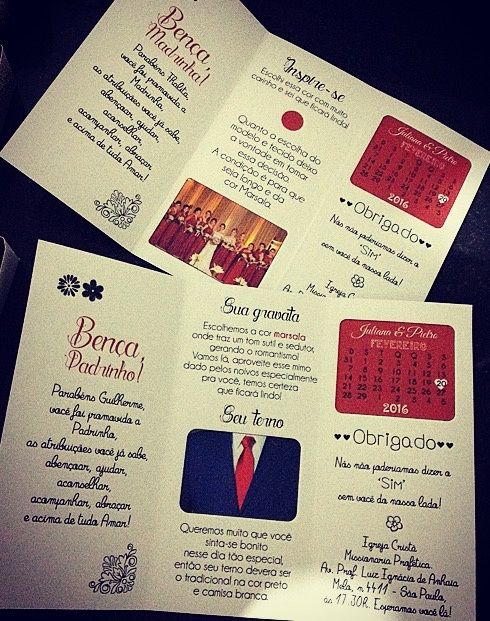 Bença,
Madrinha!
Parabéns Thalita,
você foi promovida a
Madrinha,
as atribuições você já sabe,
abençoar, ajudar,
aconselhar,
acompanhar, abraçar
e acima de tudo Amar!
Inspire-se
Escolhi essa cor com muito
carinho e sei que ficará lindo!
Quanto a escolha do
modelo e tecido deixo
a vontade em tomar
essa decisão.
A condição é para que
seja longo e da
cor Marsala.
Juliana & Pietro
FEVEREIRO
20
2016
Obrigado
Nós não poderíamos dizer o
'SIM'
sem você do nosso lado!
Igreja Cristã
Missionária
Bença,
Padrinho!
Parabéns Guilherme,
você foi promovido a
Padrinho,
as atribuições você já sabe,
abençoar, ajudar,
aconselhar,
acompanhar, abraçar
e acima de tudo Amar!
Sua gravata
Escolhemos a cor marsala
onde traz um tom sutil e sedutor,
gerando o romantismo!
Vamos lá, aproveite esse mimo
dado pelos noivos especialmente
pra você, temos certeza
que ficará lindo!
Seu terno
Queremos muito que você
sinta-se bonito
nesse dia tão especial,
então seu terno deverá ser
o tradicional na cor preto
e camisa branca.
Juliana & Pietro
FEVEREIRO
D S T Q Q S S
31 1 2 3 4 5 6
7 8 9 10 11 12 13
14 15 16 17 18 19 20
21 22 23 24 25 26 27
28 29 1 2 3 4 5
2016
Obrigado
Nós não poderíamos dizer o
'SIM'
sem você do nosso lado!
Igreja Cristã
Missionária Profética.
Av. Prof. Luiz Ignácio de Anhaia
Melo, n.4411 - São Paulo,
às 17:30h. Esperamos você lá!